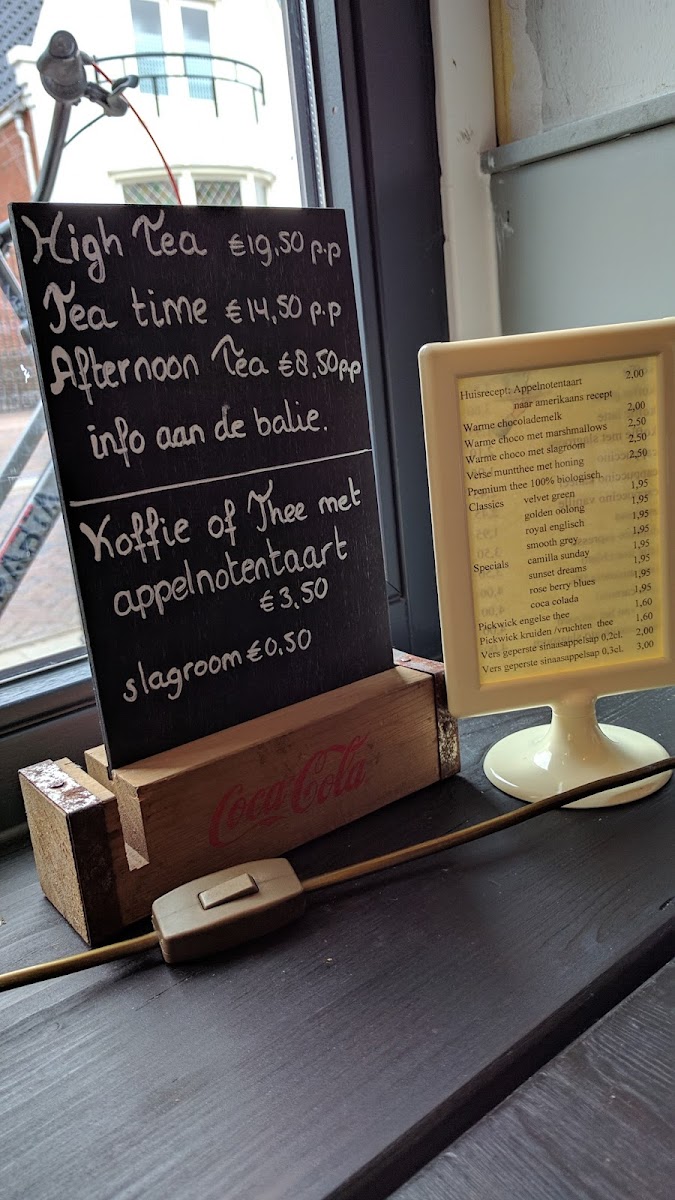 High Tea €19,50 p.p
Tea time €14,50 p.p
Afternoon Tea €8,50 pp
info aan de balie.
Koffie of Thee met
appelnotentaart
€3,50
slagroom €0.50
Coca-Cola
Huisrecept: Appelnotentaart 2,00
naar amerikaans recept
Warme chocolademelk 2,00
Warme choco met marshmallows 2,50
Warme choco met slagroom 2,50
Verse muntthee met honing 2,50
Premium thee 100% biologisch
Classics velvet green 1,95
golden oolong 1,95
royal englisch 1,95
smooth grey 1,95
Specials camilla sunday 1,95
sunset dreams 1,95
rose berry blues 1,95
coca colada 1,95
Pickwick engelse thee 1,60
Pickwick kruiden /vruchten thee 1,60
Vers geperste sinaasappelsap 0,2cl. 2,00
Vers geperste sinaasappelsap 0,3cl. 3,00